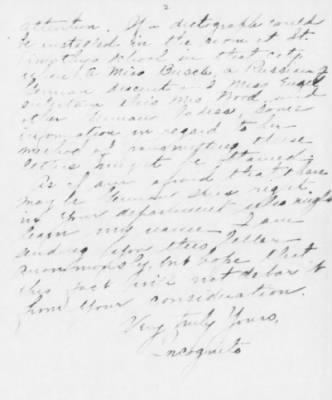 2
attention. If a dictograph could
be installed in the room at St.
Timothy's school in that city
where a Miss Busch, a Russian
German descent and Miss
this Mrs. Wood, and
other German ladies, some
information in regard to her
method of transmitting these
letters might be obtained.
As I am afraid that there
may be German spies right
in your department who might
learn my name I am
sending you this letter
anonymously, but hope that
this fact will not debar it
from your consideration.
Very truly Yours,
Incognito